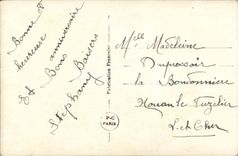 Bonne &
heureuse
anniversaire
et Bons Baisers
Stéphany
Fabrication Française
P-C
PARIS
Melle Madeleine
Dupressoir
la Bonbonnière
Nouan le Fuzelier
L. et Cher